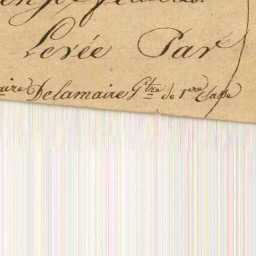 Levée Par
aire Delamaire G.tre de 1.ere Classe